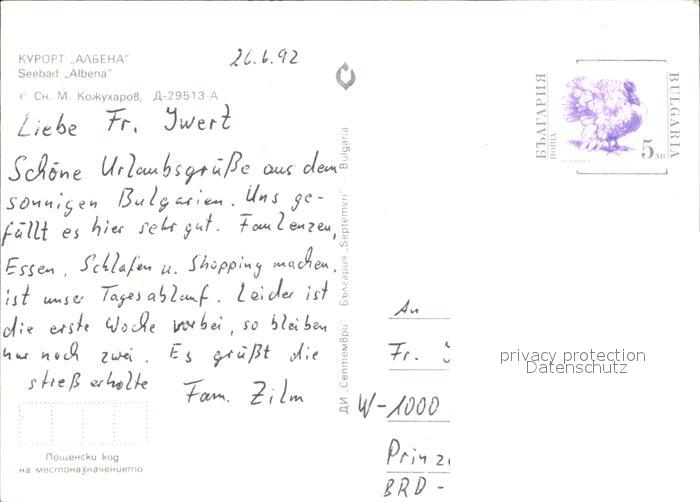 КУРОРТ „АЛБЕНА"
Seebad „Albena"
26.6.92
Сн. М. Кожухаров, Д-29513-А
Liebe Fr. Iwert
Schöne Urlaubsgrüße aus dem
sonnigen Bulgarien. Uns ge-
fällt es hier sehr gut. Faulenzen,
Essen, Schlafen u. Shopping machen,
ist unser Tagesablauf. Leider ist
die erste Woche vorbei, so bleiben
nur noch zwei. Es grüßt die
streß erholte Fam. Zilm
Пощенски код
на местоназначението
ДИ „Септември" България „Septemvri" Bulgaria
БЪЛГАРИЯ
ПОЩА
BULGARIA
5лв
An
Fr. I
W-1000
Prinz
BRD -
privacy protection
Datenschutz